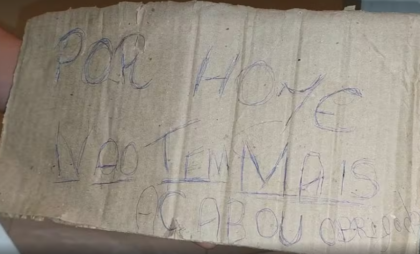 POR HOME
NAO TEM MAIS
ACABOU OBRIGADO